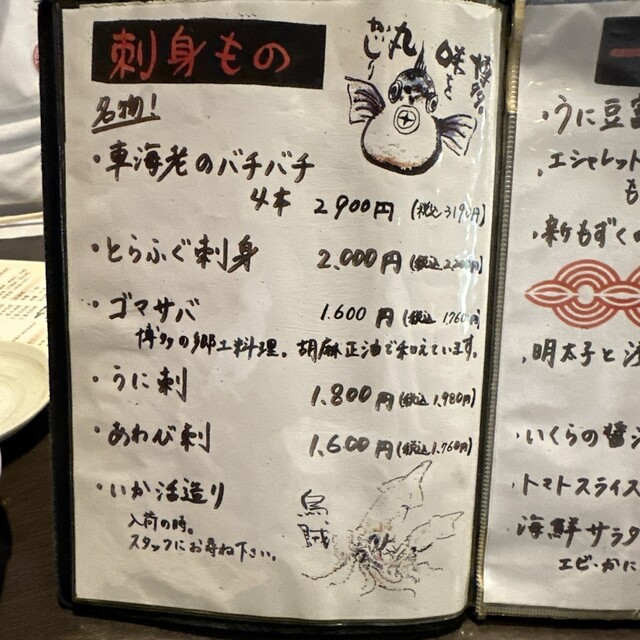 刺身もの
博多の
味を
丸
かじり
名物!
・車海老のバチバチ
4本 2900円(税込3190円)
・とらふぐ刺身 2.000円(税込2,200円)
・ゴマサバ 1.600円(税込1,760円
博多の郷土料理。胡麻正油で和えています。
・うに刺 1.800円(税込1,980円)
・あわび刺 1.600円(税込1,760円)
・いか活造り
入荷の時。
スタッフにお尋ね下さい。
烏賊
・うに豆富
・エシャレット
も
・新もずくの
明太子と
・いくらの醤油
・トマトスライス
海鮮サラダ
エビ・かに